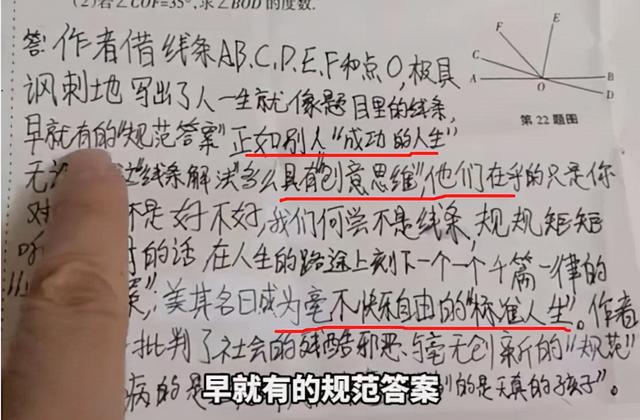 (2)若∠COF=35°,求∠BOD的度数.
答:作者借线条AB、C、D、E、F和点O,极具
讽刺地写出了人一生就像题目里的线条,
早就有的"规范答案"正如别人"成功的人生"
无 "线条解决"多么具有"创意思维",他们在乎的只是你
对 不是好不好,我们何尝不是线条,规规矩矩
听 的话,在人生的路途上刻下一个一个千篇一律的
美其名曰成为毫不快乐自由的"标准人生"。作者
批判了社会的残酷邪恶、与毫无创新的"规范"
病的是 的是天真的孩子"。
F
E
C
A
B
O
D
第22题图
早就有的规范答案